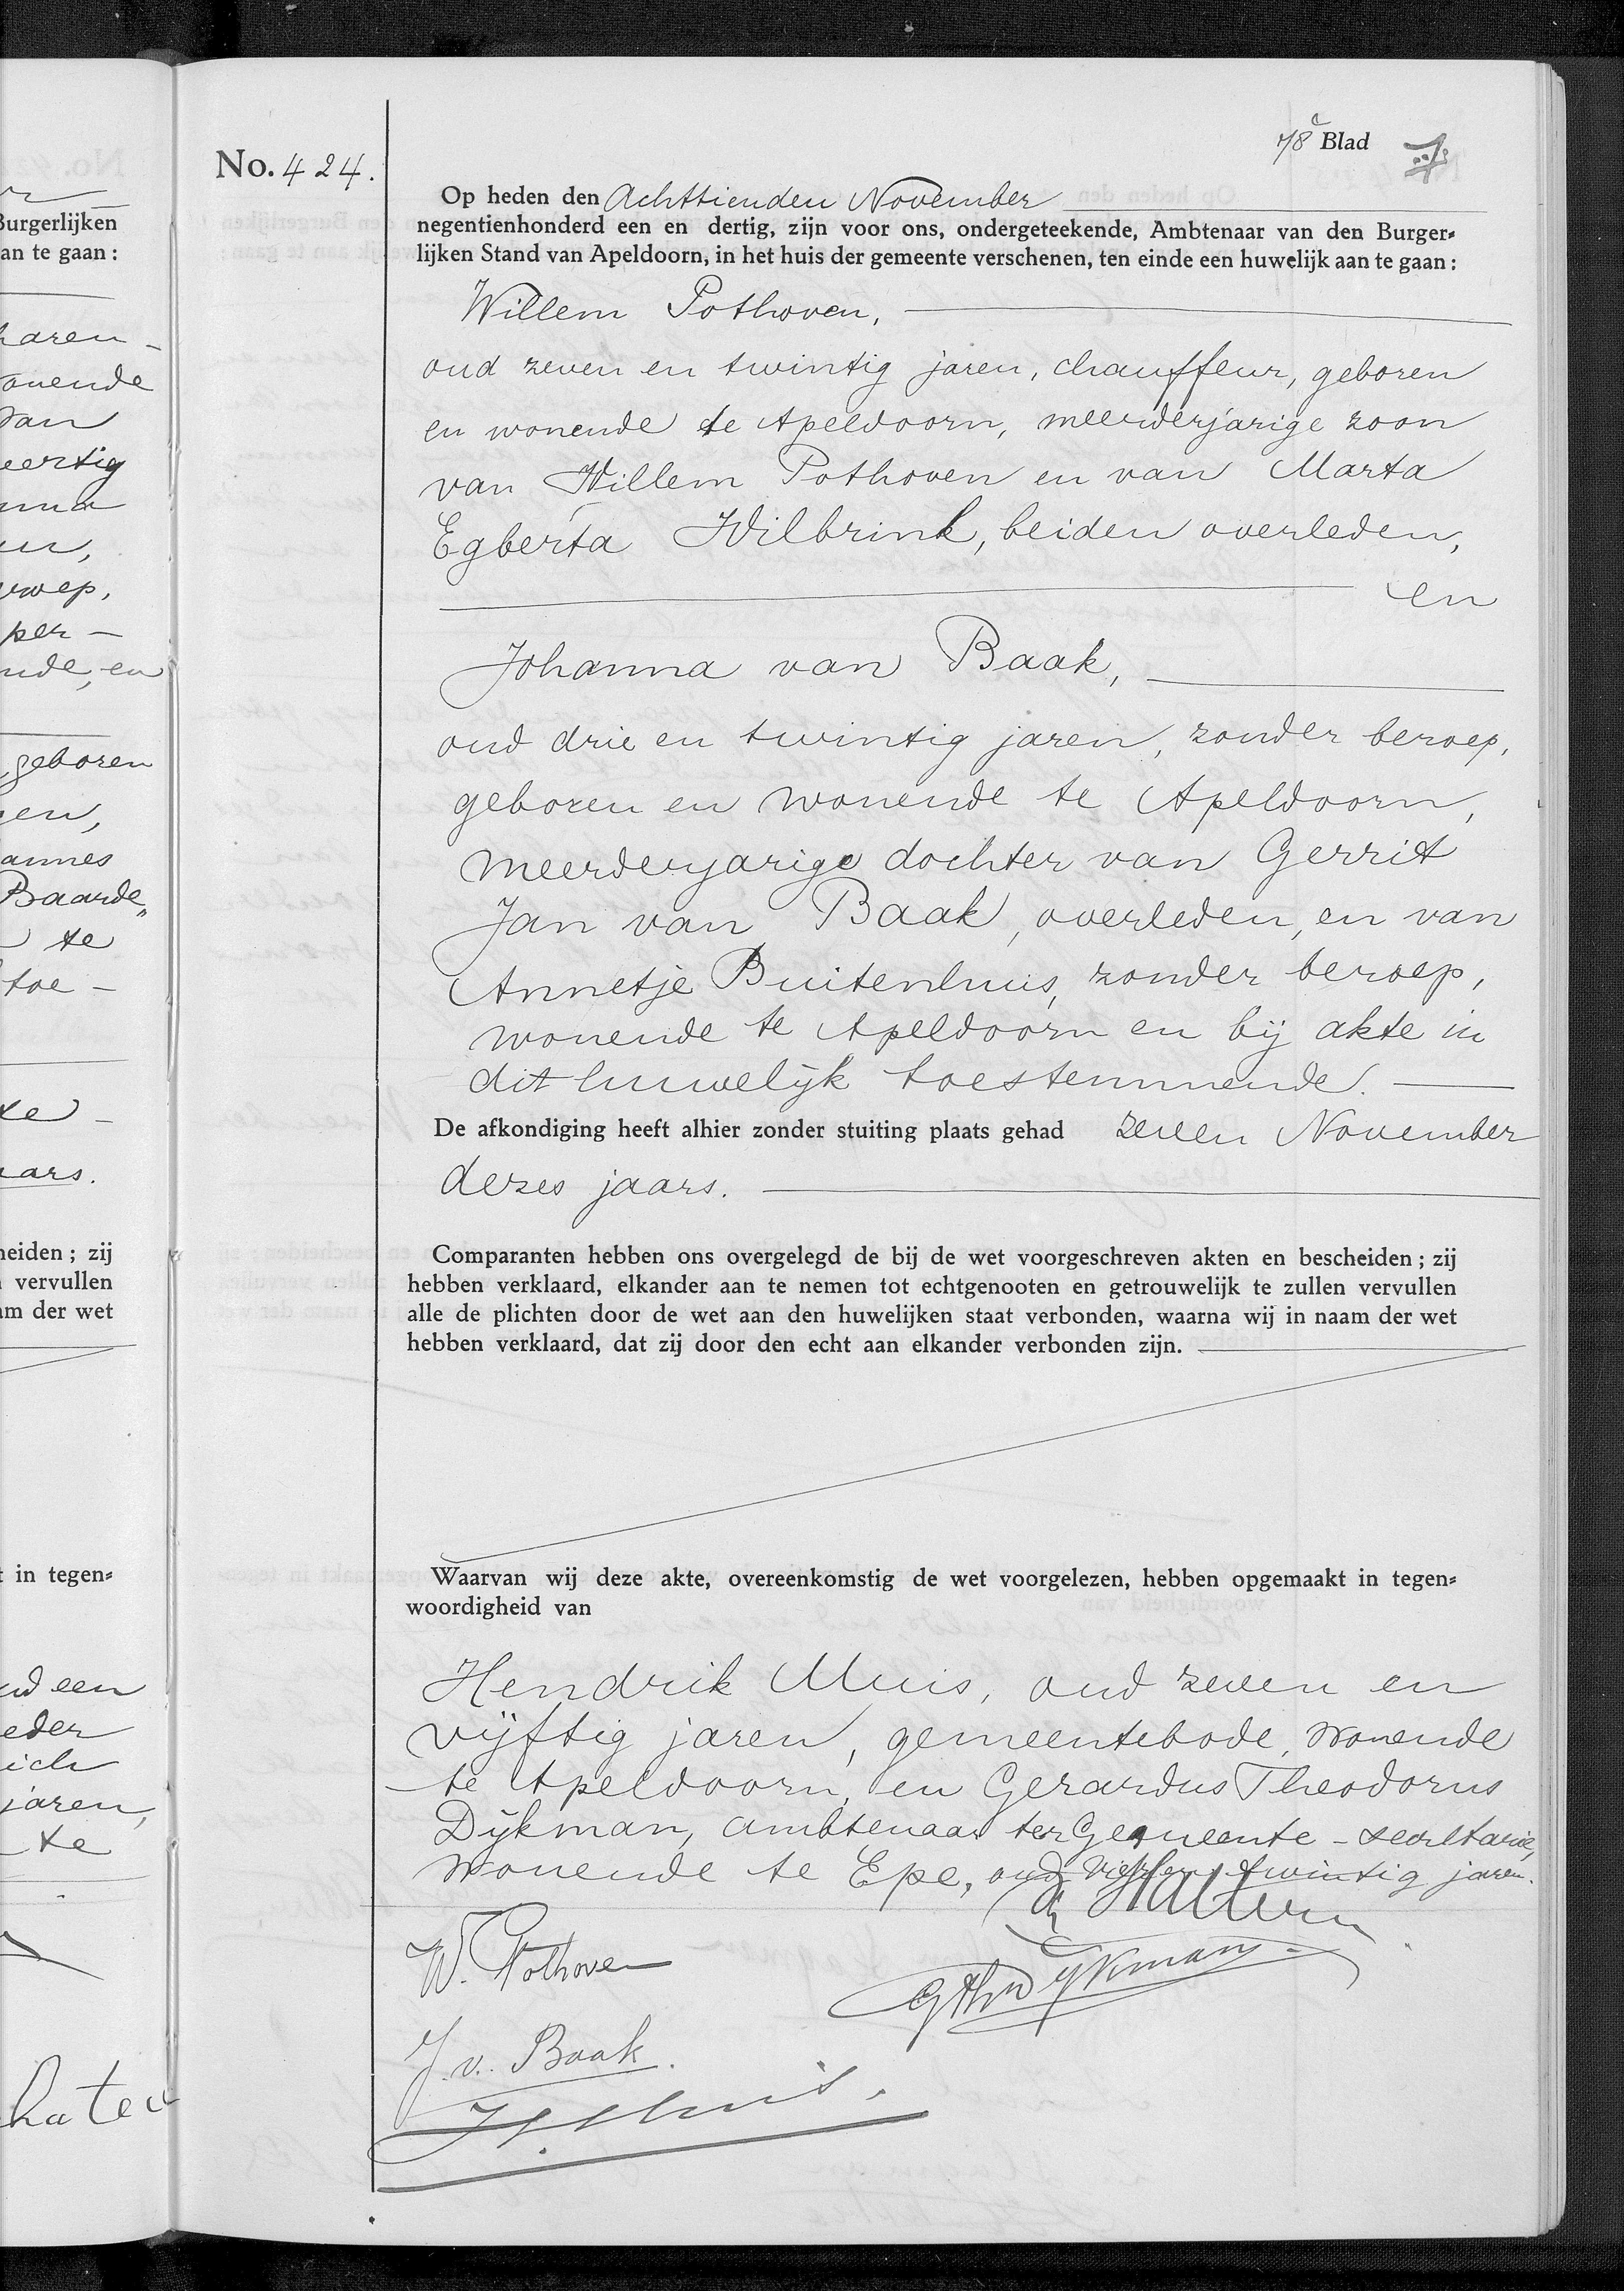 78e Blad
No. 424.
Op heden den Achttienden November
negentienhonderd een en dertig, zijn voor ons, ondergeteekende, Ambtenaar van den Burger-
lijken Stand van Apeldoorn, in het huis der gemeente verschenen, ten einde een huwelijk aan te gaan:
Willem Pothoven,
oud zeven en twintig jaren, chauffeur, geboren
en wonende te Apeldoorn, meerderjarige zoon
van Willem Pothoven en van Marta
Egberta Wilbrink, beiden overleden,
en
Johanna van Baak,
oud drie en twintig jaren, zonder beroep,
geboren en wonende te Apeldoorn,
meerderjarige dochter van Gerrit
Jan van Baak, overleden, en van
Annetje Buitenhuis, zonder beroep,
wonende te Apeldoorn en bij akte in
dit huwelijk toestemmende.
De afkondiging heeft alhier zonder stuiting plaats gehad zeven November
dezes jaars.
Comparanten hebben ons overgelegd de bij de wet voorgeschreven akten en bescheiden; zij
hebben verklaard, elkander aan te nemen tot echtgenooten en getrouwelijk te zullen vervullen
alle de plichten door de wet aan den huwelijken staat verbonden, waarna wij in naam der wet
hebben verklaard, dat zij door den echt aan elkander verbonden zijn.
Waarvan wij deze akte, overeenkomstig de wet voorgelezen, hebben opgemaakt in tegen-
woordigheid van
Hendrik Muis, oud zeven en
vijftig jaren, gemeentebode, wonende
te Apeldoorn, en Gerardus Theodorus
Dijkman, ambtenaar ter Gemeente-secretarie,
wonende te Epe, oud vier en twintig jaren.
W. Pothoven
GThDijkman
J. v. Baak.
H. Muis.